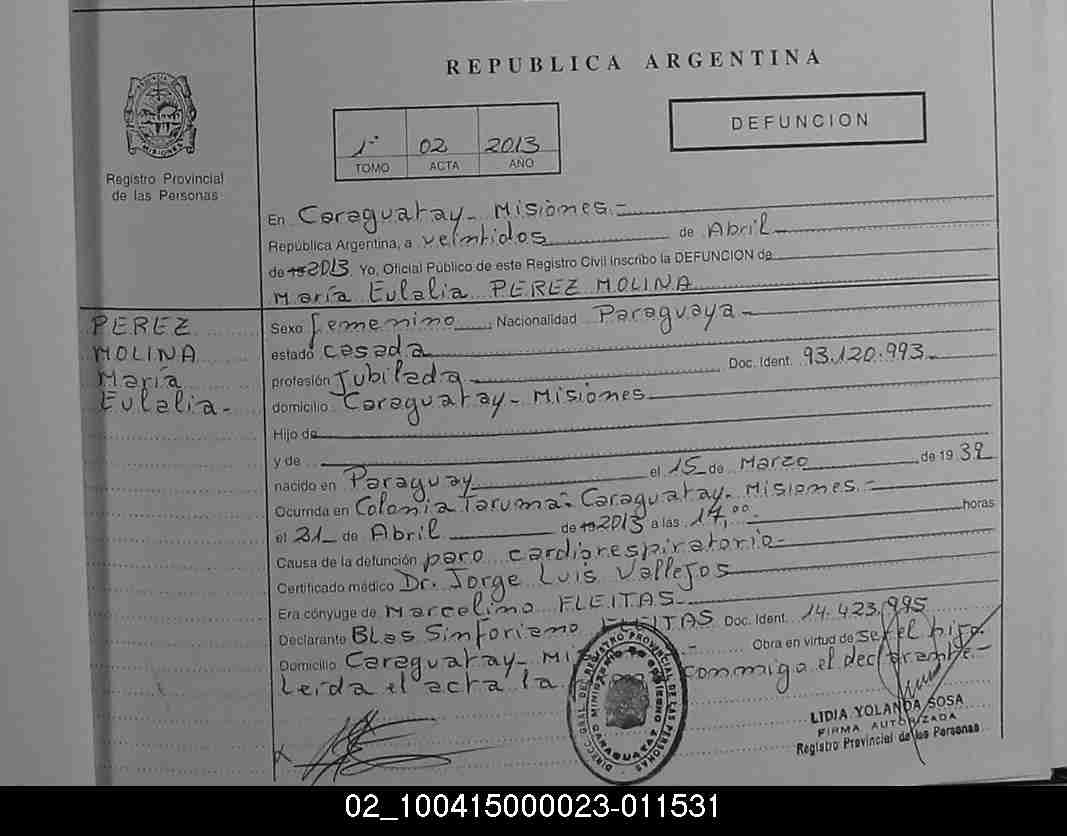 REPUBLICA ARGENTINA
DEFUNCION
1° 02 2013
TOMO ACTA AÑO
Registro Provincial
de las Personas
En Caraguatay - Misiones.-
República Argentina, a veintidos de Abril
de 19 2013. Yo, Oficial Público de este Registro Civil inscribo la DEFUNCION de
María Eulalia PEREZ MOLINA
PEREZ
MOLINA
María
Eulalia.-
Sexo femenino Nacionalidad Paraguaya -
estado casada
profesión Jubilada Doc. Ident. 93.120.993.
domicilio Caraguatay - Misiones
Hijo de
y de
nacido en Paraguay el 15 de Marzo de 19 39
Ocurrida en Colonia Taruma - Caraguatay - Misiones.-
el 21 de Abril de 19 2013 a las 14,00 horas
Causa de la defunción paro cardiorespiratorio-
Certificado médico Dr. Jorge Luis Vallejos
Era cónyuge de Marcelino FLEITAS
Declarante Blas Sinforiano FLEITAS Doc. Ident. 14.423.995
Domicilio Caraguatay - Mi Obra en virtud de ser el hijo
Leída el acta la conmigo el declarante.-
DIRECC. GRAL. DEL REGISTRO PROVINCIAL DE LAS PERSONAS
MINISTERIO DE GOBIERNO
CARAGUATAY
LIDIA YOLANDA SOSA
FIRMA AUTORIZADA
Registro Provincial de las Personas
02_100415000023-011531